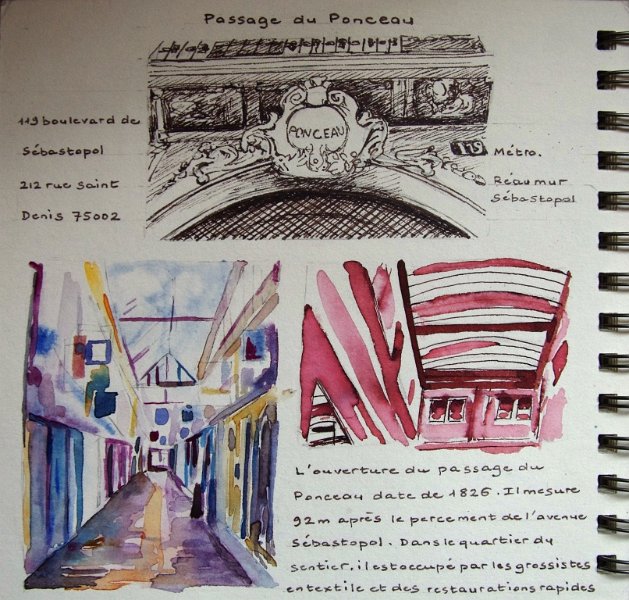 Passage du Ponceau
PONCEAU
119
119 boulevard de
Sébastopol
212 rue saint
Denis 75002
Métro.
Réaumur
Sébastopol
L'ouverture du passage du
Ponceau date de 1826. Il mesure
92m après le percement de l'avenue
Sébastopol. Dans le quartier du
sentier, il est occupé par les grossistes
en textile et des restaurations rapides